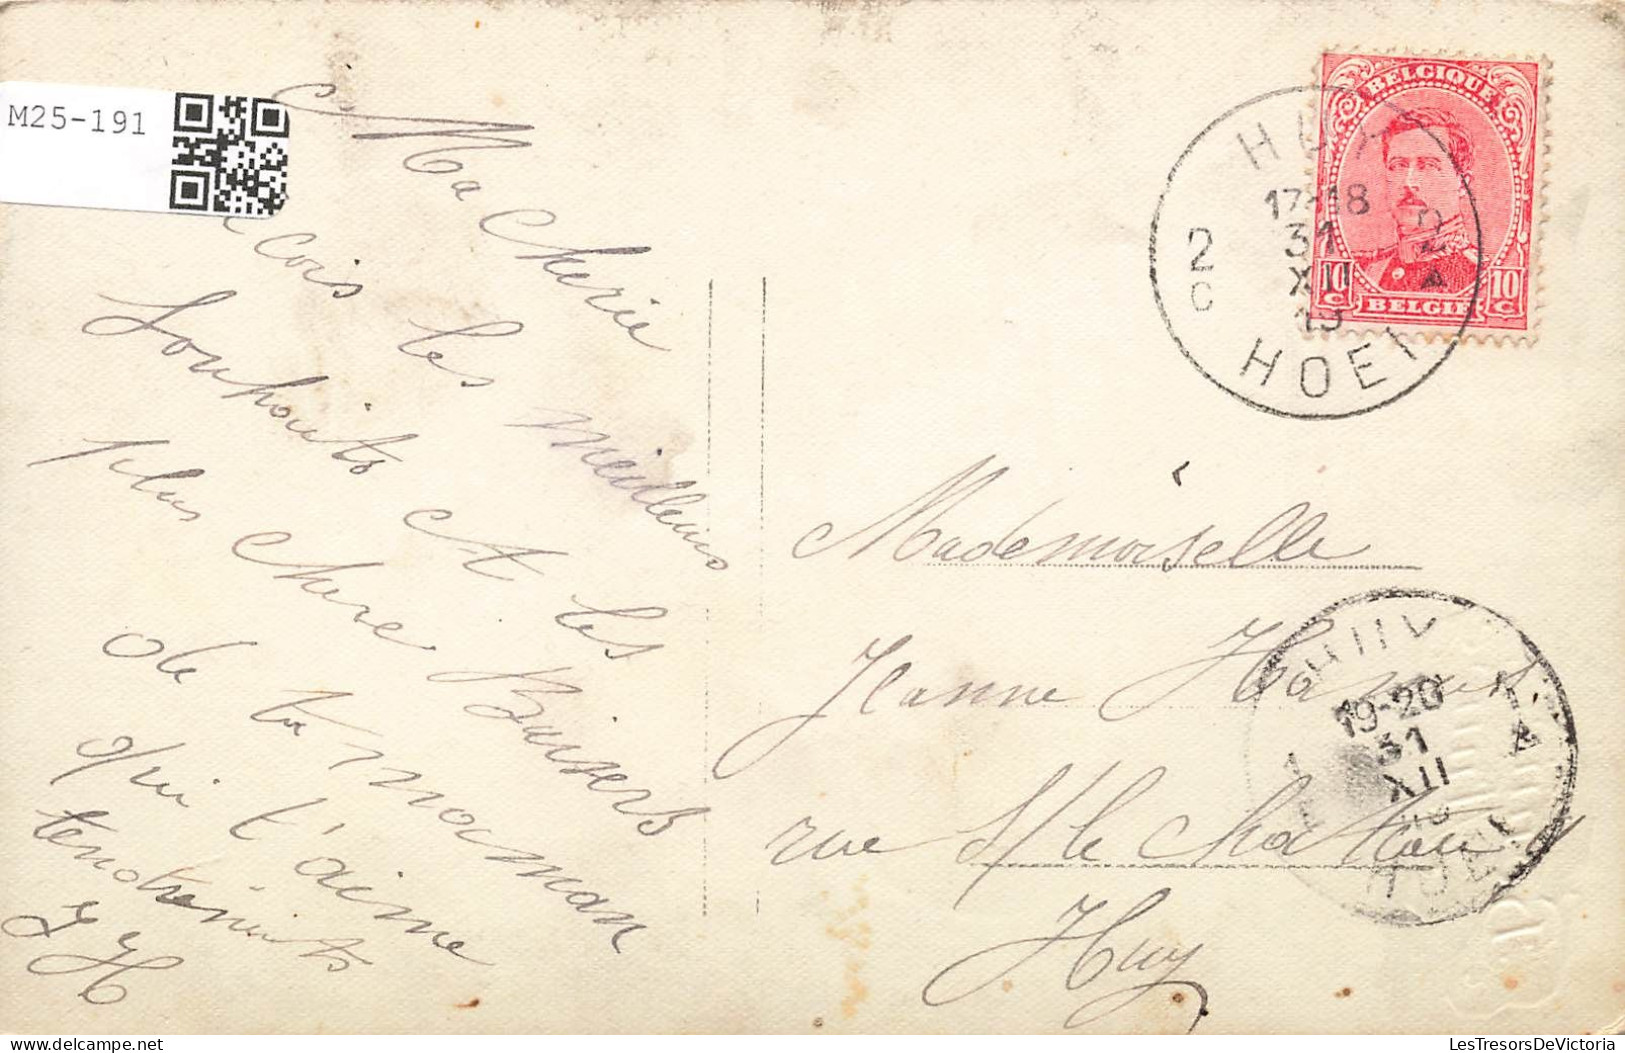 M25-191
Ma Cherie
recois les meilleurs
Souhaits et les
plus chere Baisers
de ta maman
qui t'aime
tendrements
J H
BELGIQUE
10 C
10 C
BELGIË
HUY
17-18
31
XII
19
2
C
2
A
HOEI
Mademoiselle
Jeanne Hanus
rue S/le chateau
Huy
19-20
31
XII
A
HOEI
LesTresorsDeVictoria
delcampe.net